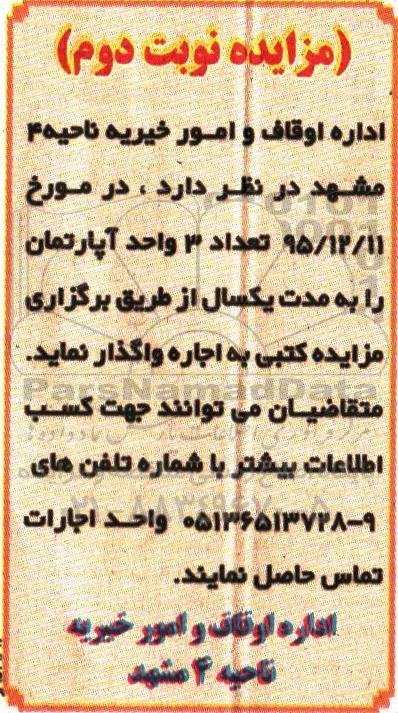 (مزایده نوبت دوم)
اداره اوقاف و امور خیریه ناحیه۴
مشهد در نظر دارد ، در مورخ
۹۵/۱۲/۱۱ تعداد ۳ واحد آپارتمان
را به مدت یکسال از طریق برگزاری
مزایده کتبی به اجاره واگذار نماید.
ParsNamadData
متقاضیان می توانند جهت کسب
اطلاعات بیشتر با شماره تلفن های
۰۵۱۳۶۵۱۳۷۲۸-۹ واحد اجارات
تماس حاصل نمایند.
اداره اوقاف و امور خیریه
ناحیه ۴ مشهد